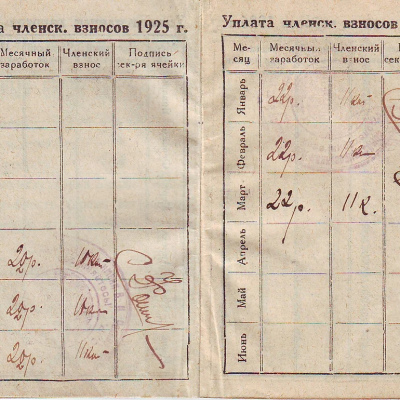 а членск. взносов 1925 г.
Месячный заработок Членский взнос Подпись сек-ря ячейки
20р. 10к.
20р. 10к.
20р. 11к.
Уплата членск. взносов
Ме-сяц Месячный заработок Членский взнос
Январь 22р. 11к.
Февраль 22р. 11к.
Март 22р. 11к.
Апрель
Май
Июнь